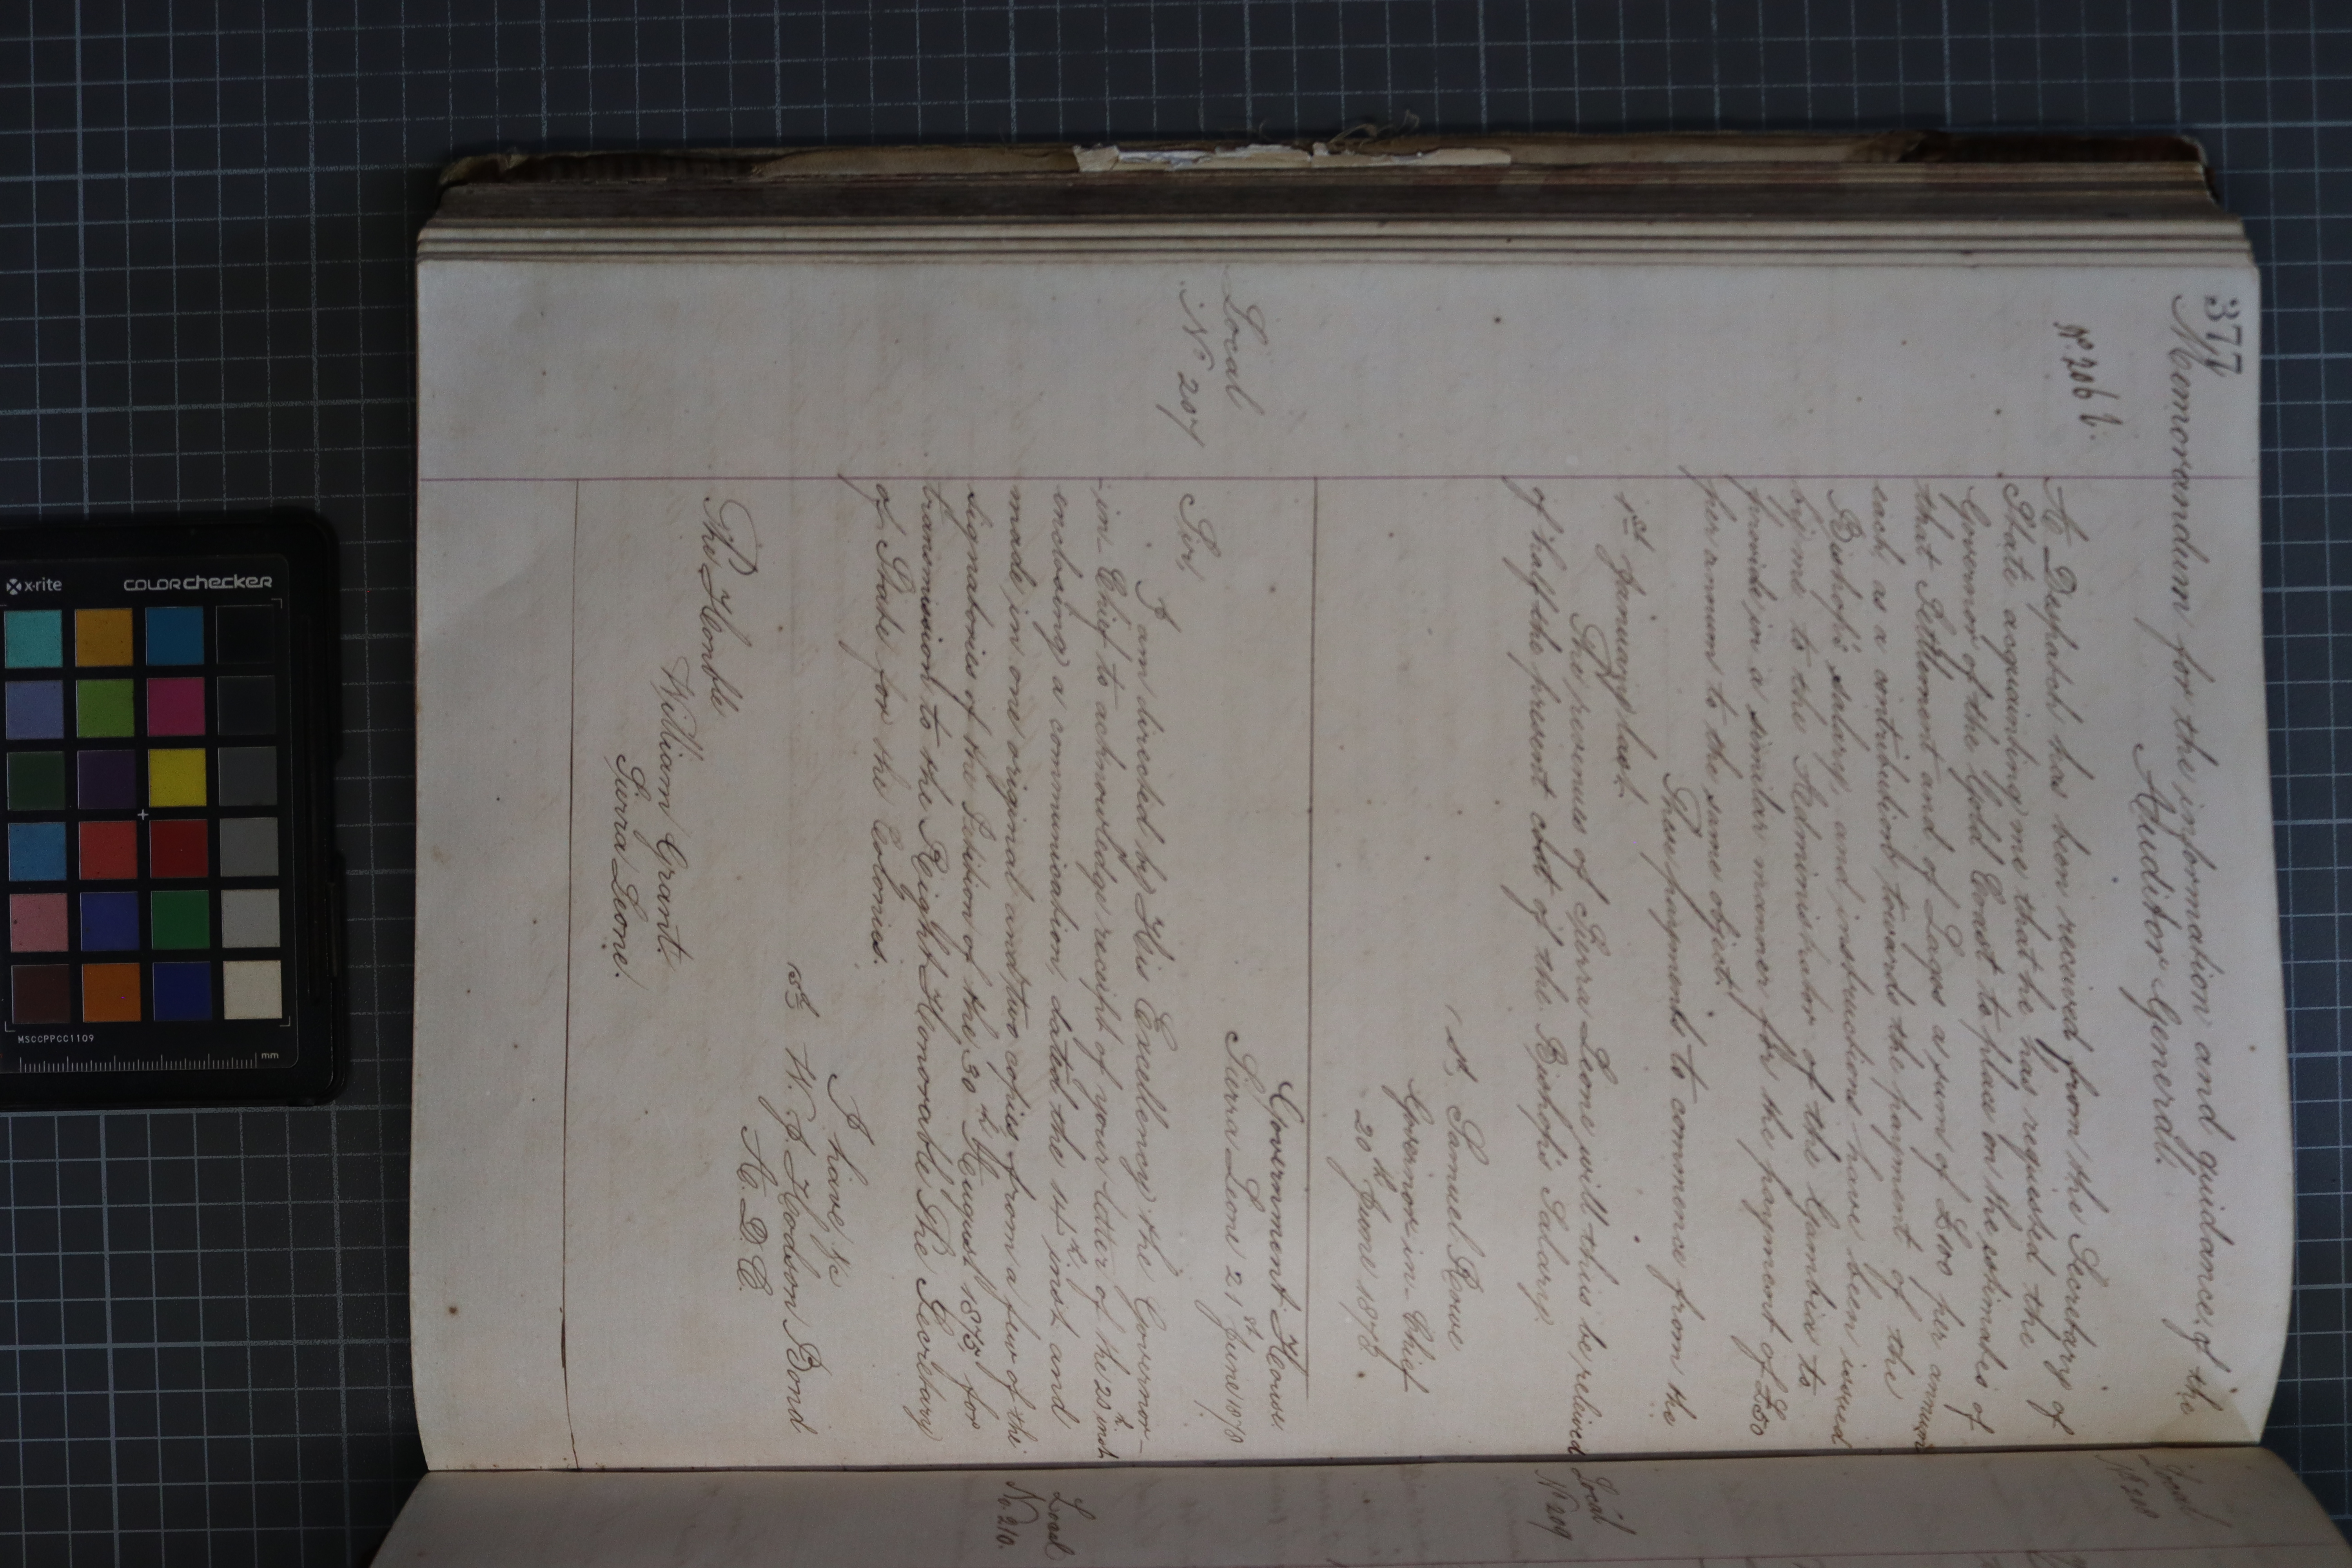 377
Memorandum for the information and guidance of the
Auditor General.
No 206 b.
A Despatch has been received from the Secretary of
State acquainting me that he has requested the
Governor of the Gold Coast to place on the estimates of
that Settlement and of Lagos a sum of £100 per annum
each, as a contribution towards the payment of the
Bishop's salary, and instructions have been issued
by me to the Administrator of the Gambia to
provide in a similar manner for the payment of £50
per annum to the same object.
These payments to commence from the
1st January last.
The revenues of Sierra Leone will thus be relieved
of half the present cost of the Bishop's Salary.
sd Samuel Rowe
Governor-in-Chief
20th June 1878.
Local
No 207
Government House
Sierra Leone 21st June 1878
Sir,
I am directed by His Excellency the Governor-
-in-Chief to acknowledge receipt of your letter of the 20th inst
enclosing a communication, dated the 14th inst and
made in one original and two copies from a few of the
signatories of the Petition of the 30th August 1875, for
transmission to the Right Honorable The Secretary
of State for the Colonies.
I have &c
sd W. J. Hodson Bond
A. D. C.
The Honble
William Grant.
Sierra Leone.
Local
No 208
Local
No 209
Local
No 210.
x-rite
colorchecker
MSCCPPCC1109
mm